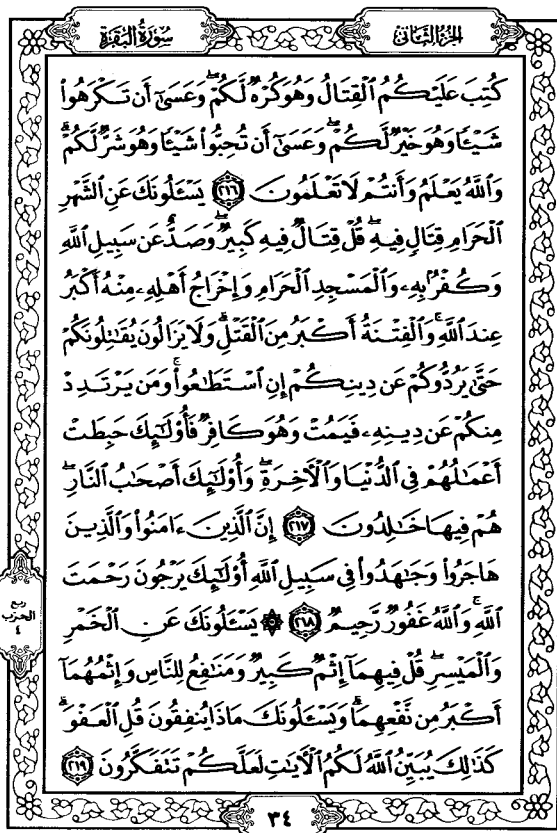 سُورَةُ البَقَرَةِ
الجُزءُ الثَّانِى
كُتِبَ عَلَيْكُمُ ٱلْقِتَالُ وَهُوَ كُرْهٌ لَّكُمْ ۖ وَعَسَىٰٓ أَن تَكْرَهُوا۟
شَيْـًٔا وَهُوَ خَيْرٌ لَّكُمْ ۖ وَعَسَىٰٓ أَن تُحِبُّوا۟ شَيْـًٔا وَهُوَ شَرٌّ لَّكُمْ ۗ
وَٱللَّهُ يَعْلَمُ وَأَنتُمْ لَا تَعْلَمُونَ ٢١٦ يَسْـَٔلُونَكَ عَنِ ٱلشَّهْرِ
ٱلْحَرَامِ قِتَالٍ فِيهِ ۖ قُلْ قِتَالٌ فِيهِ كَبِيرٌ ۖ وَصَدٌّ عَن سَبِيلِ ٱللَّهِ
وَكُفْرٌۢ بِهِۦ وَٱلْمَسْجِدِ ٱلْحَرَامِ وَإِخْرَاجُ أَهْلِهِۦ مِنْهُ أَكْبَرُ
عِندَ ٱللَّهِ ۚ وَٱلْفِتْنَةُ أَكْبَرُ مِنَ ٱلْقَتْلِ ۗ وَلَا يَزَالُونَ يُقَـٰتِلُونَكُمْ
حَتَّىٰ يَرُدُّوكُمْ عَن دِينِكُمْ إِنِ ٱسْتَطَـٰعُوا۟ ۚ وَمَن يَرْتَدِدْ
مِنكُمْ عَن دِينِهِۦ فَيَمُتْ وَهُوَ كَافِرٌ فَأُو۟لَـٰٓئِكَ حَبِطَتْ
أَعْمَـٰلُهُمْ فِى ٱلدُّنْيَا وَٱلْـَٔاخِرَةِ ۖ وَأُو۟لَـٰٓئِكَ أَصْحَـٰبُ ٱلنَّارِ ۖ
هُمْ فِيهَا خَـٰلِدُونَ ٢١٧ إِنَّ ٱلَّذِينَ ءَامَنُوا۟ وَٱلَّذِينَ
هَاجَرُوا۟ وَجَـٰهَدُوا۟ فِى سَبِيلِ ٱللَّهِ أُو۟لَـٰٓئِكَ يَرْجُونَ رَحْمَتَ
ٱللَّهِ ۚ وَٱللَّهُ غَفُورٌ رَّحِيمٌ ٢١٨ ۞ يَسْـَٔلُونَكَ عَنِ ٱلْخَمْرِ
وَٱلْمَيْسِرِ ۖ قُلْ فِيهِمَآ إِثْمٌ كَبِيرٌ وَمَنَـٰفِعُ لِلنَّاسِ وَإِثْمُهُمَآ
أَكْبَرُ مِن نَّفْعِهِمَا ۗ وَيَسْـَٔلُونَكَ مَاذَا يُنفِقُونَ قُلِ ٱلْعَفْوَ ۗ
كَذَٰلِكَ يُبَيِّنُ ٱللَّهُ لَكُمُ ٱلْـَٔايَـٰتِ لَعَلَّكُمْ تَتَفَكَّرُونَ ٢١٩
ربع
الحزب
٤
٣٤